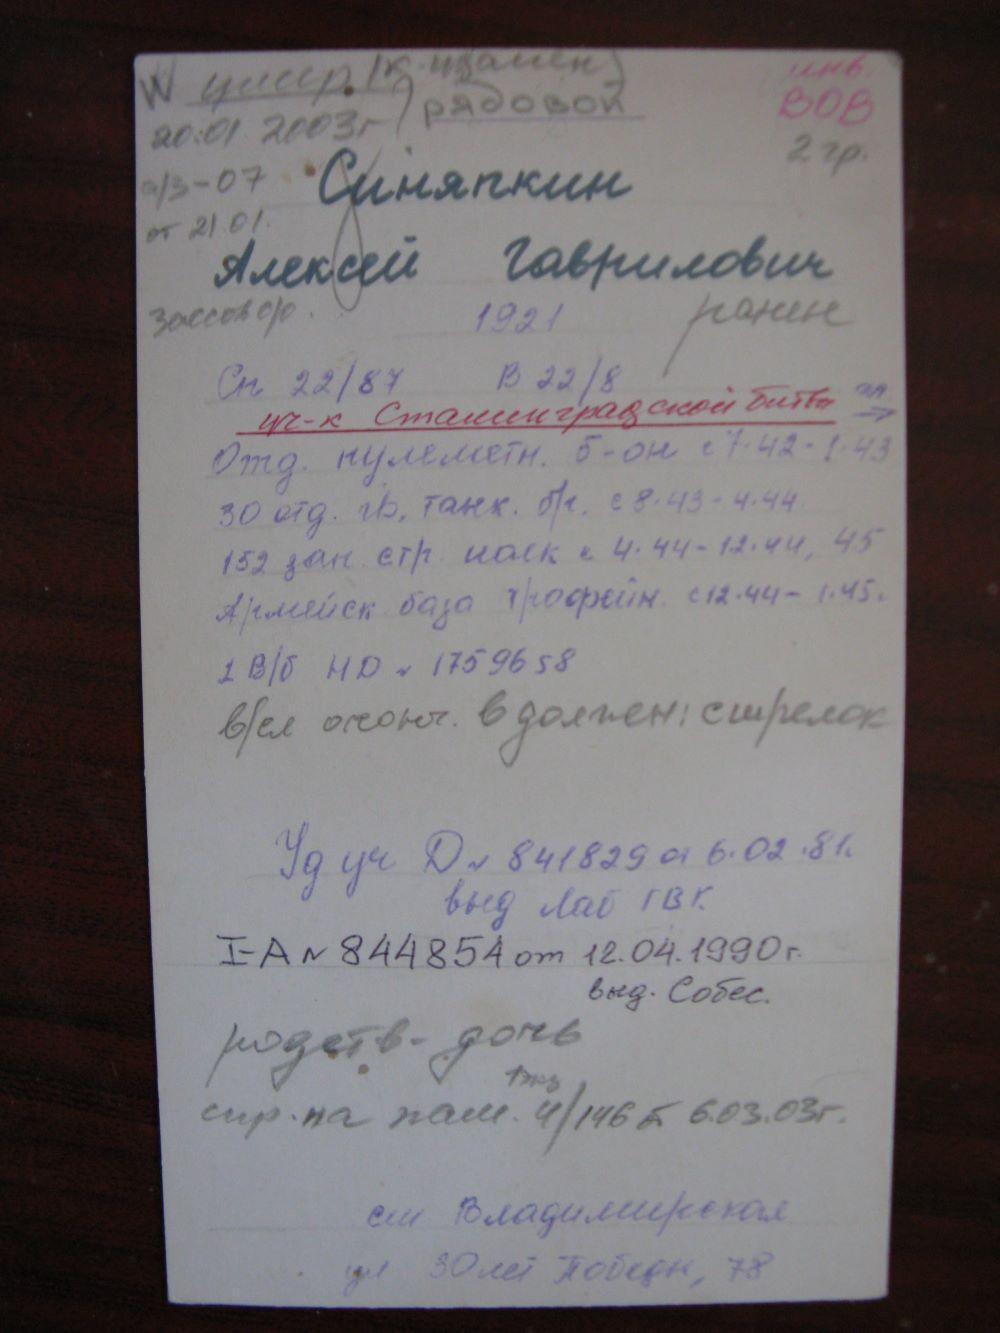 умер
инв.
20.01 2003г
рядовой
ВОВ
2 гр.
а/з-07
от 21.01.
Синяпкин
Алексей Гаврилович
1921
ранен
Сп 22/87 В 22/8
уч-к Сталинградской битвы
Отд. пулеметн. б-он с 7.42-1.43
30 отд. гв. танк. бр. с 8.43-4.44.
152 зап. стр. полк с 4.44-12.44, 45
Армейск база трофейн. с 12.44-1.45.
1 В/б НД № 1759658
в/сл оконч. в должен: стрелок
Уд уч Д № 841829 от 6.02.81г.
выд Лаб ГВК
I-А № 844854 от 12.04.1990г.
выд. Собес.
родств-дочь
спр. на пам. 4/146 6.03.03г.
ст Владимирская
ул 30 лет Победы, 78